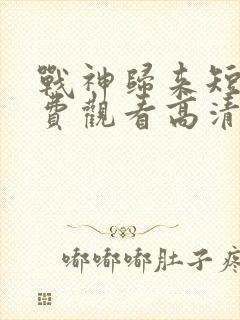 戰神歸來短
費觀看高清
嘟嘟嘟肚子疼